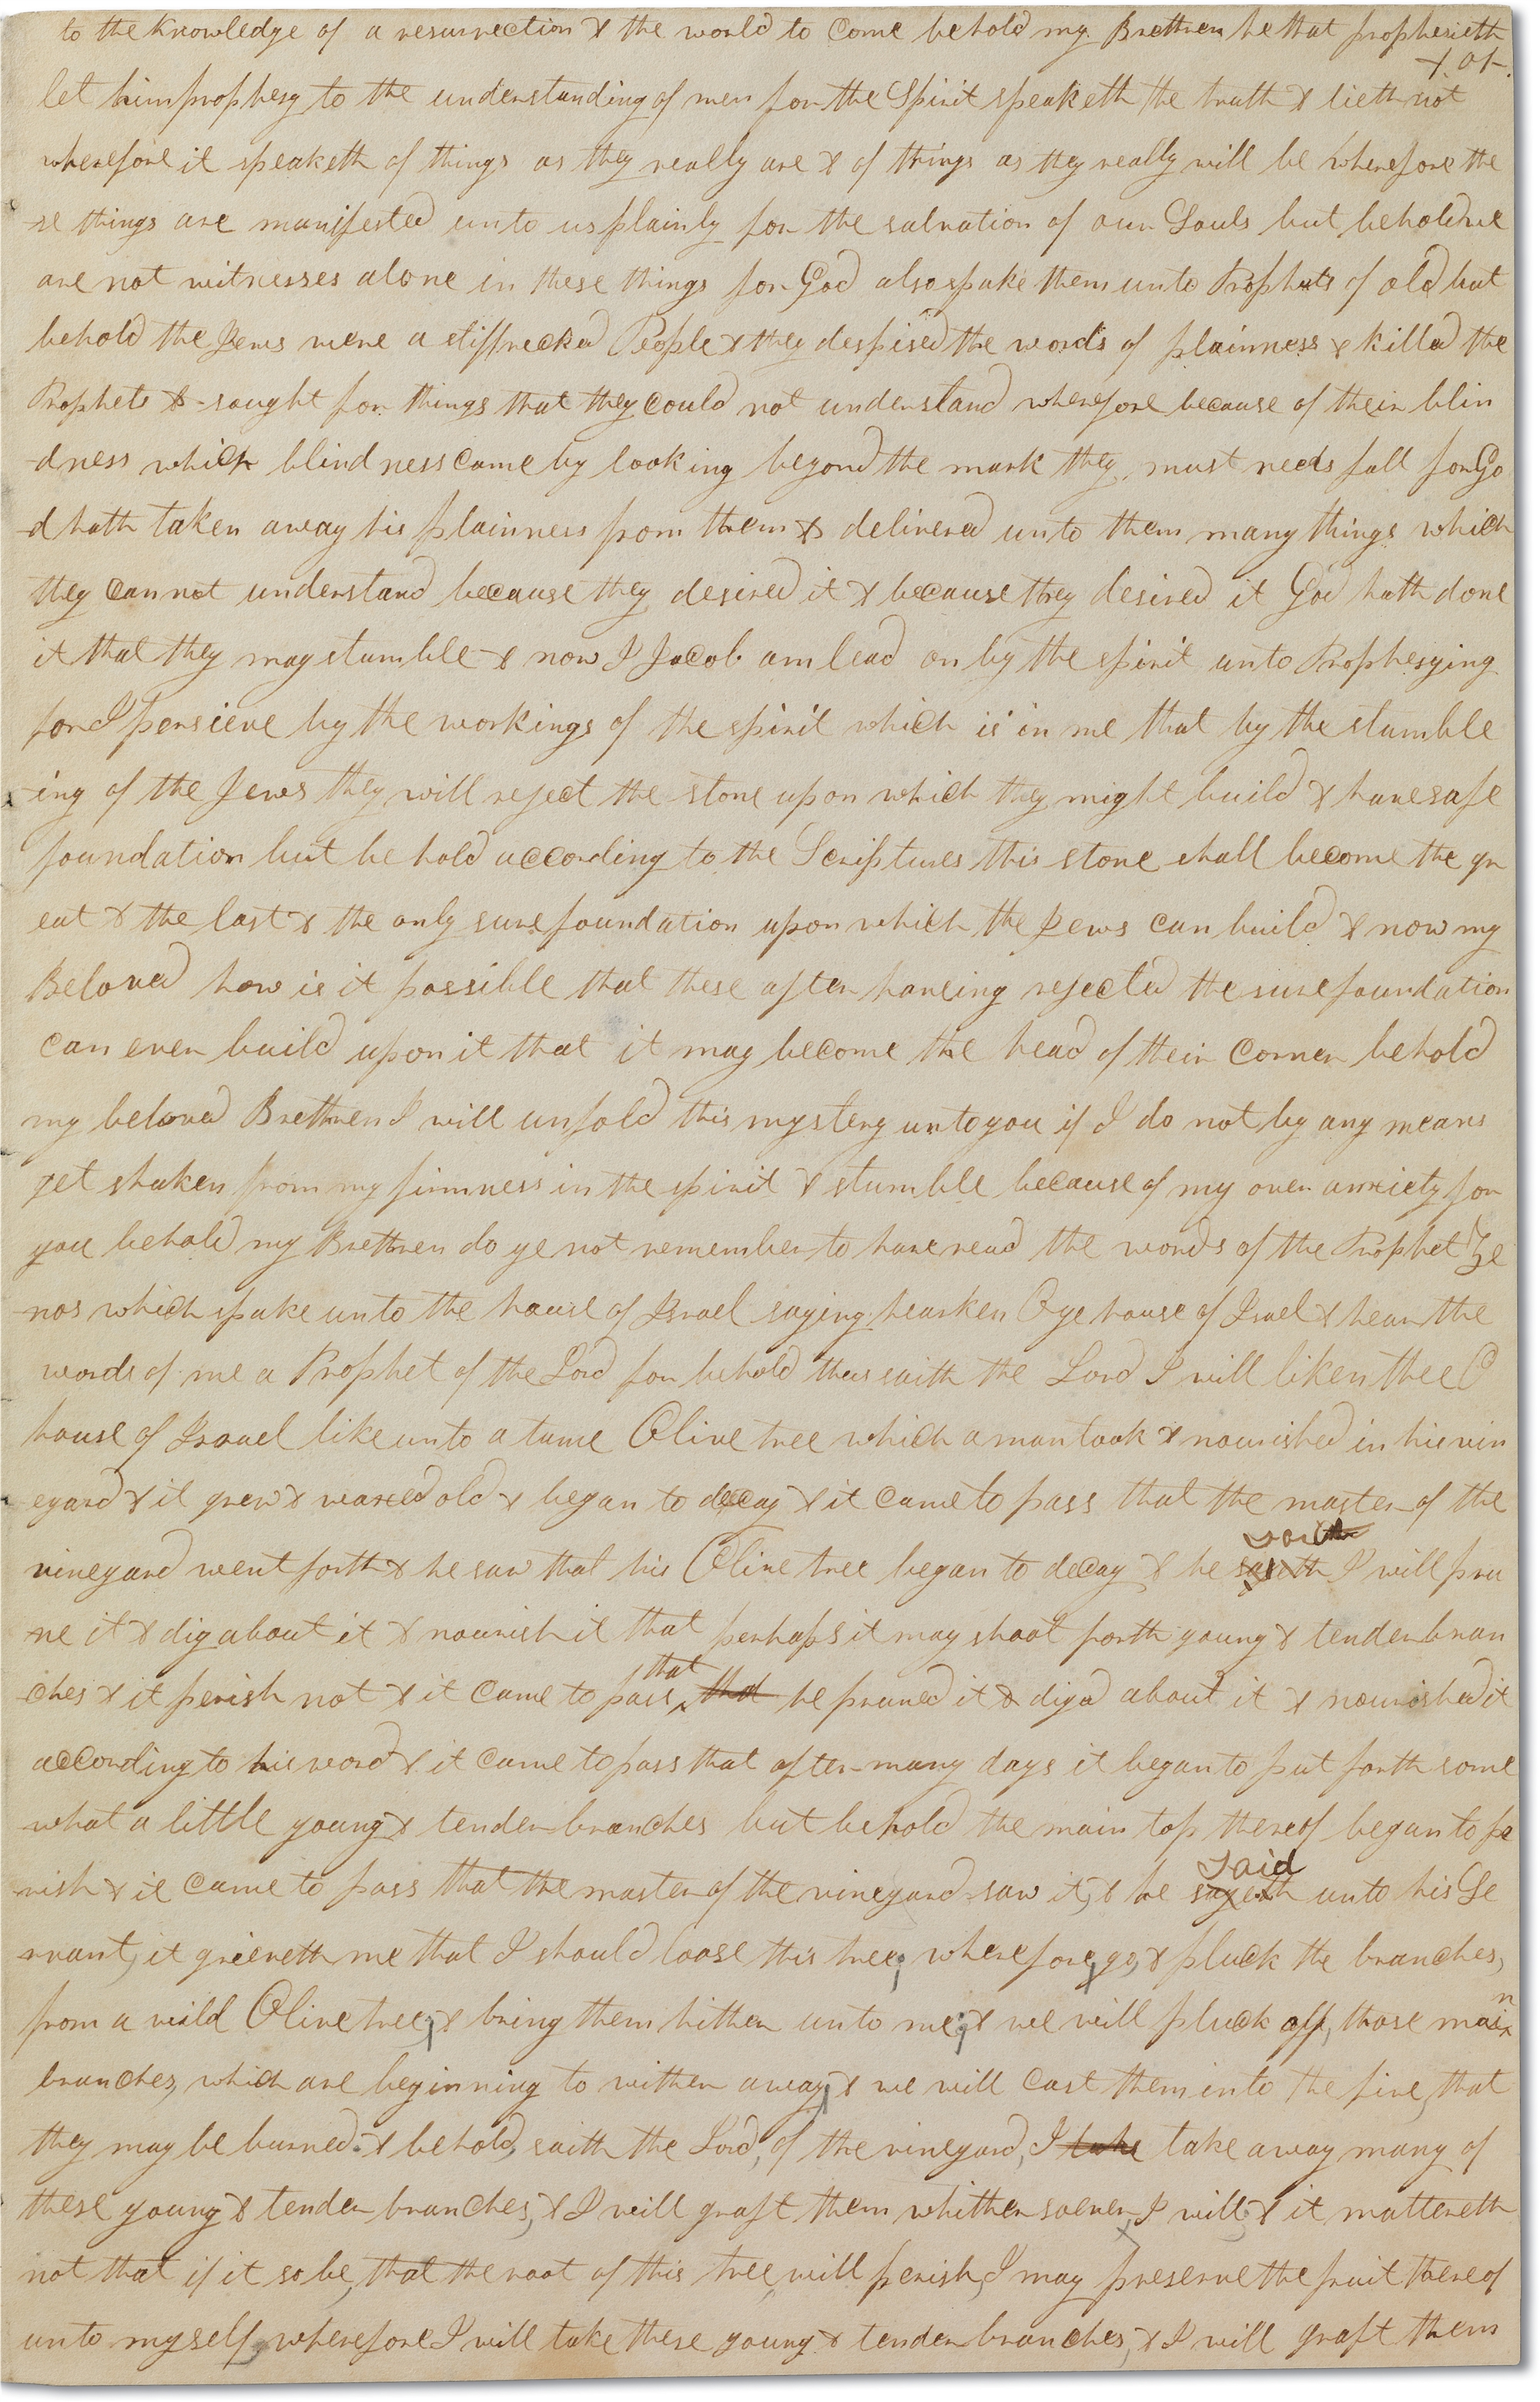 to the knowledge of a resurrection & the world to come behold my Brethren he that prophesieth
& not.
let him prophesy to the understanding of men for the Spirit speaketh the truth & lieth not
wherefore it speaketh of things as they really are & of things as they really will be wherefore the
-se things are manifested unto us plainly for the salvation of our Souls but behold we
are not witnesses alone in these things for God also spake them unto Prophets of old but
behold the Jews were a stiffnecked People & they despised the words of plainness & killed the
Prophets & sought for things that they could not understand wherefore because of their blin
-dness which blindness came by looking beyond the mark they must needs fall for Go
-d hath taken away his plainness from them & delivered unto them many things which
they cannot understand because they desired it & because they desired it God hath done
it that they may stumble & now I Jacob am lead on by the spirit unto Prophesying
for I persieve by the workings of the spirit which is in me that by the stumble
-ing of the Jews they will reject the stone upon which they might build & have safe
foundation but behold according to the Scriptures this stone shall become the gr
eat & the last & the only sure foundation upon which the Jews can build & now my
Beloved how is it possible that these after haveing rejected the sure foundation
can ever build upon it that it may become the head of their corner behold
my beloved Brethren I will unfold this mystery unto you if I do not by any means
get shaken from my firmness in the spirit & stumble because of my over anxiety for
you behold my Brethren do ye not remember to have read the words of the Prophet Ze
-nos which spake unto the house of Israel saying hearken O ye house of Israel & hear the
words of me a Prophet of the Lord for behold thus saith the Lord I will liken thee O
house of Israel like unto a tame Olive tree which a man took & nourished in his vin
eyard & it grew & waxed old & began to decay & it came to pass that the master of the
saith
vineyard went forth & he saw that his Olive tree began to decay & he sayeth I will pru
-ne it & dig about it & nourish it that perhaps it may shoot forth young & tender bran
that
-ches & it perish not & it came to pass that he pruned it & digd about it & nourished it
according to his word & it came to pass that after many days it began to put forth some
what a little young & tender branches but behold the main top thereof began to pe
said
-rish & it came to pass that the master of the vineyard saw it, & he sayeth unto his Se
-rvant, it grieveth me that I should loose this tree; wherefore, go, & pluck the branches,
n
from a wild Olive tree; & bring them hither unto me; & we will pluck off, those mai
branches, which are beginning to wither away, & we will cast them into the fire, that
they may be burned. & behold, saith the Lord, of the vineyard, I take take away many of
these young & tender branches, & I will graft them whithersoever I will, & it mattereth
not that if it so be, that the root of this tree, will perish, I may preserve the fruit thereof
unto myself, wherefore I will take these young & tender branches, & I will graft them